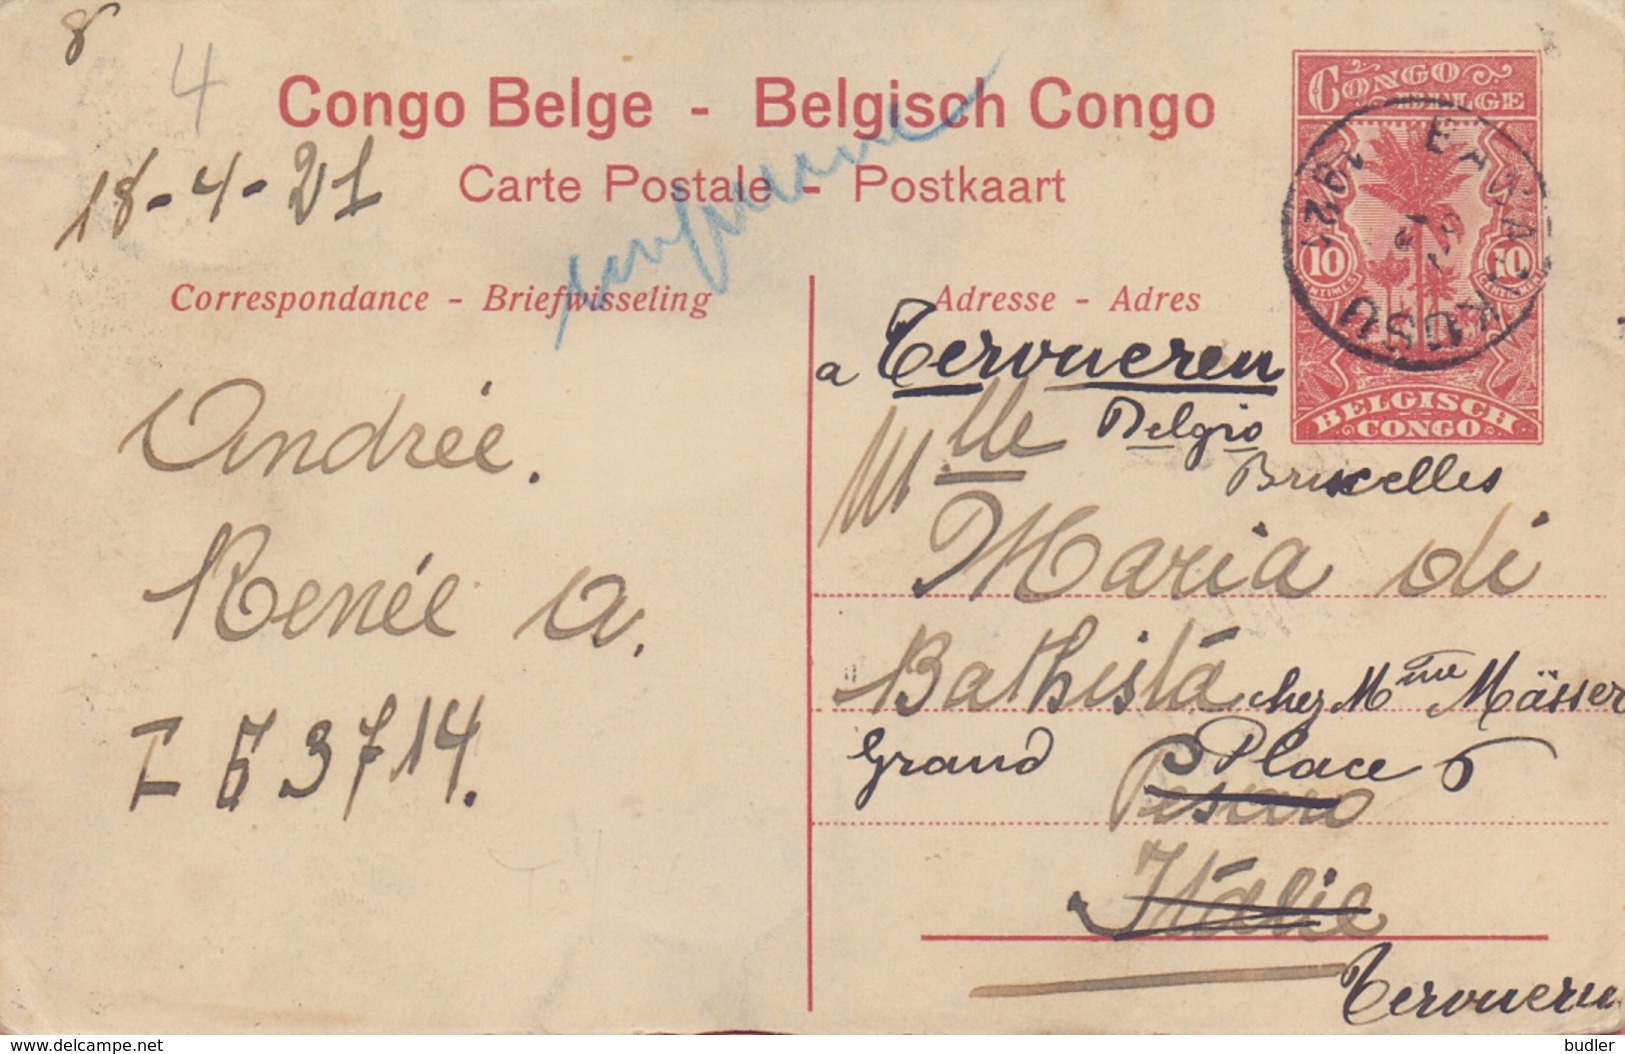 8
4
Congo Belge - Belgisch Congo
Carte Postale - Postkaart
18-4-21
Correspondance - Briefwisseling
Adresse - Adres
CONGO
BELGE
10
10
BELGISCH
CONGO
1921
KUSU
a Tervueren
Belgio
Bruxelles
Mlle
Maria di
Bathista chez Mme Mässer
Grand Place 6
Pesaro
Italie
Tervueren
Andrée.
Renée a.
3714.
delcampe.net
budler